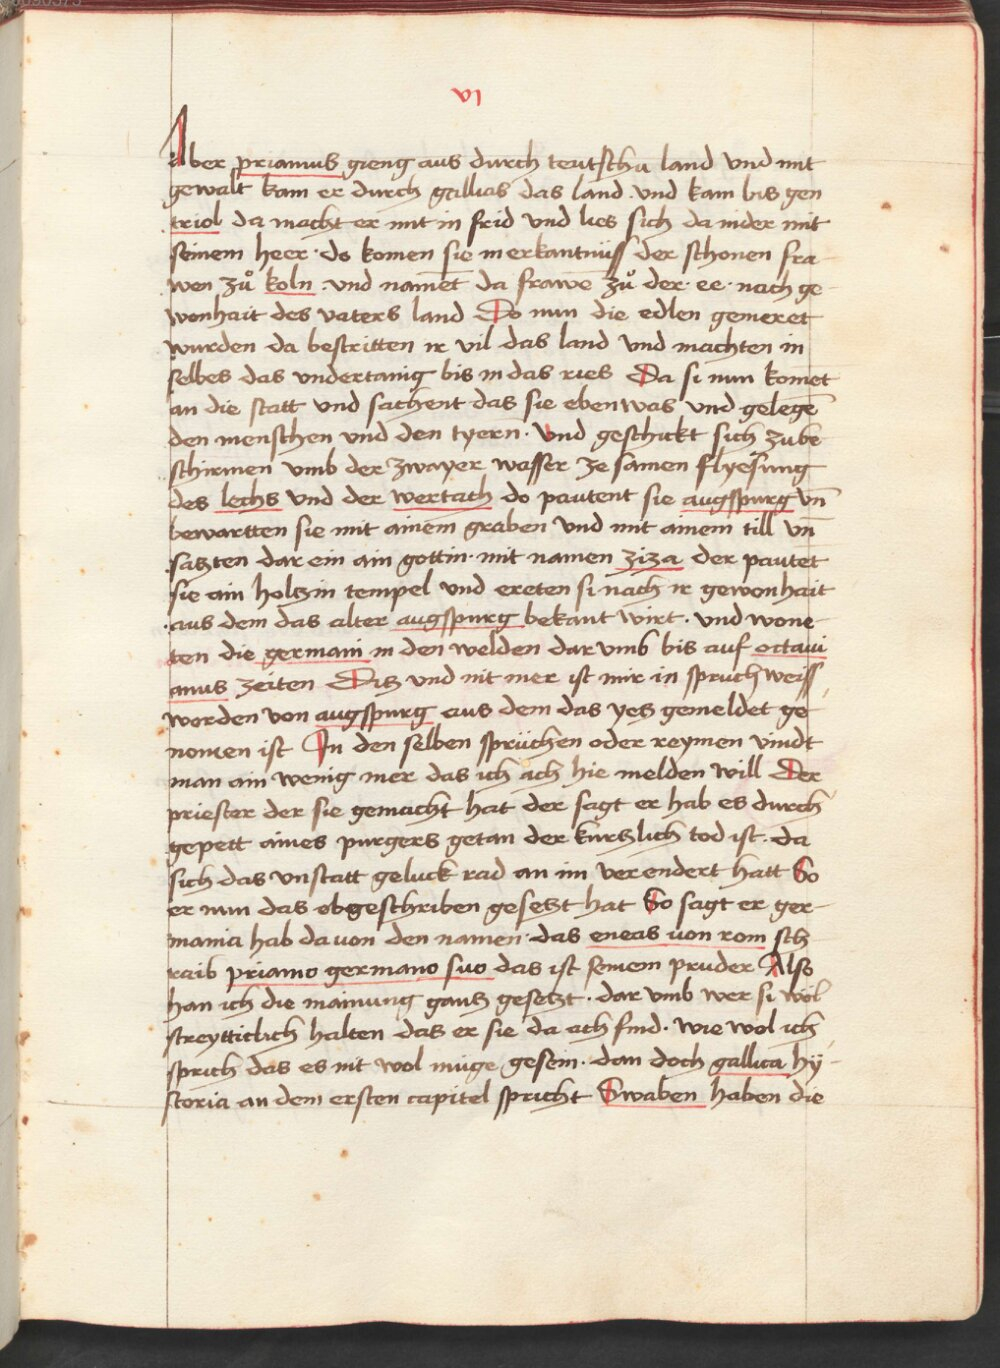 VI
Aber priamus gieng aus durch teutschu land vnd mit
gewalt kam er durch gallias das land vnd kam bis gen
triol da macht er mit in frid vnd lies sich da nider mit
seinem heer · do komen sie in erkantnüss der schonen fra-
wen zů koln · vnd namēt da frawē zů der · ee · nach ge-
wonhait des vaters land Do nun die edlen gemeret
wurden da bestritten ir vil das land vnd machten in
selbes das vndertanig bis in das ries Da si nun komēt
an die statt vnd sachent das sie eben was vnd gelegē
den menschen vnd den tyern · Vnd geschickt sich zu be-
schirmen vmb der zwayer wasser ze samen flyesung
des lechs vnd der wertach do pautent sie augspurg vn̄
bewartten sie mit ainem graben vnd mit ainem till vn̄
satzten dar ein ain gottin · mit namen ziza der pautet
sie ain holtzin tempel vnd ereten si nach ir gewonhait
· aus dem das alter augspurg bekant wirt · vnd wone-
ten die germani in den welden dar vmb bis auf octaui
anus zeiten Ditz vnd nit mer ist mir in spruch weiss
worden von augspurg aus dem das yetz gemeldet ge
nomen ist In den selben sprüchen oder reymen vindt
man ain wenig mer das ich ach hie melden will Der
priester der sie gemacht hat der sagt er hab es durch
gepett aines purgers getan der kurtzlich tod ist · da
sich das vnstatt geluck rad an im verendert hatt So
er nun das obgeschriben gesetzt hat So sagt er ger-
mania hab da von den namen · das eneas von rom sch
raib priamo germano suo das ist seinem pruder Also
han ich die mainung gantz gesetzt · dar vmb wer si wöl
streytticlich halten das er sie da ach find · wie wol ich
sprich das es nit wol müge gesein · dan doch gallica hÿ-
storia an dem ersten capitel spricht Swaben haben die